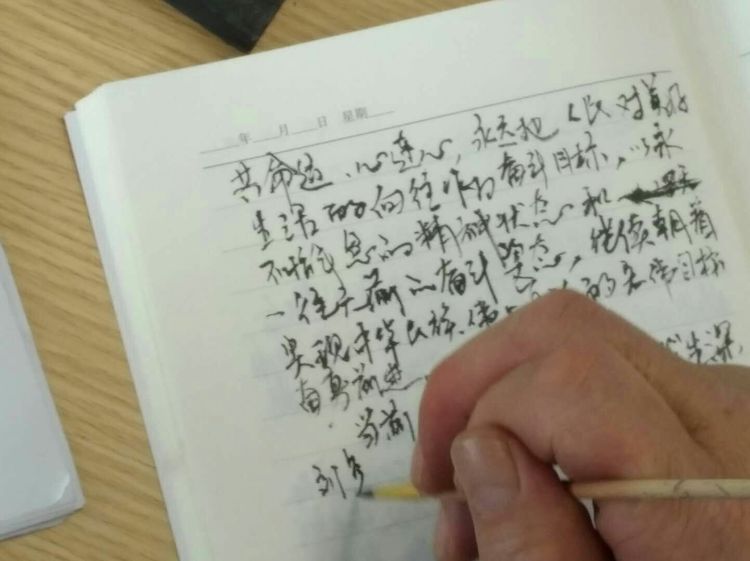 年 月 日 星期
共命运、心连心,永远把人民对美好
生活的向往作为奋斗目标,以永
不懈怠的精神状态和
一往无前的奋斗姿态,继续朝着
实现中华民族伟 的宏伟目标
奋勇前进
当前